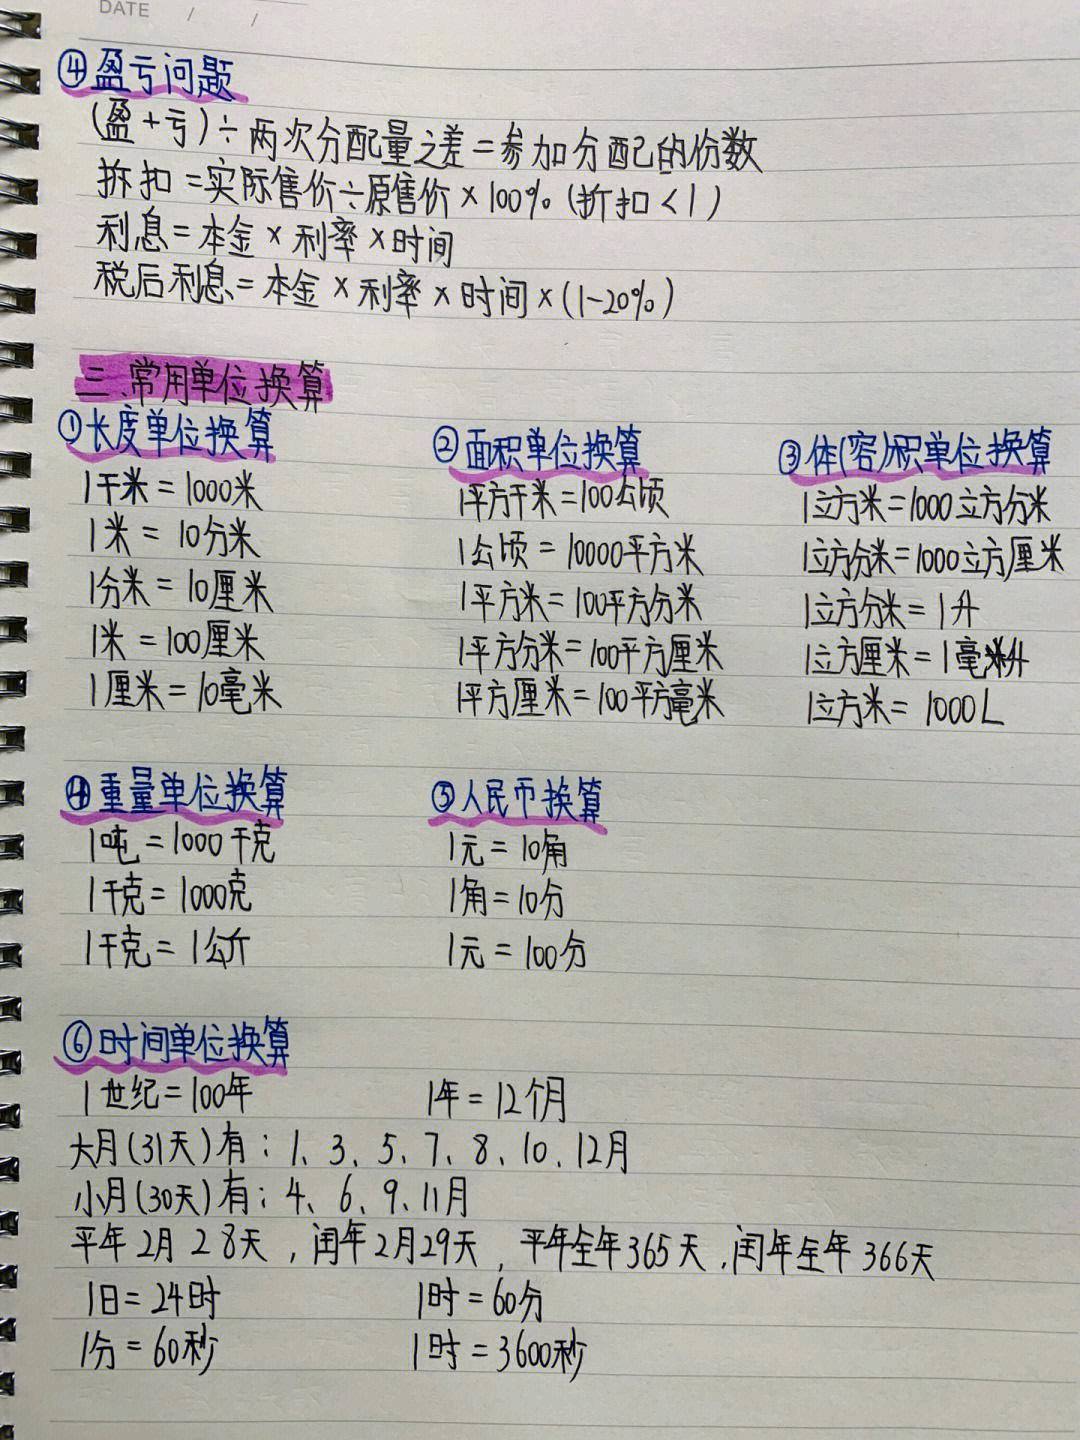 DATE / /
④盈亏问题
(盈+亏)÷两次分配量之差=参加分配的份数
折扣=实际售价÷原售价×100% (折扣<1)
利息=本金×利率×时间
税后利息=本金×利率×时间×(1-20%)
三、常用单位换算
①长度单位换算
1千米=1000米
1米=10分米
1分米=10厘米
1米=100厘米
1厘米=10毫米
②面积单位换算
1平方千米=100公顷
1公顷=10000平方米
1平方米=100平方分米
1平方分米=100平方厘米
1平方厘米=100平方毫米
③体(容)积单位换算
1立方米=1000立方分米
1立方分米=1000立方厘米
1立方分米=1升
1立方厘米=1毫升
1立方米=1000L
④重量单位换算
1吨=1000千克
1千克=1000克
1千克=1公斤
⑤人民币换算
1元=10角
1角=10分
1元=100分
⑥时间单位换算
1世纪=100年 1年=12个月
大月(31天)有:1、3、5、7、8、10、12月
小月(30天)有:4、6、9、11月
平年2月28天,闰年2月29天,平年全年365天,闰年全年366天
1日=24时 1时=60分
1分=60秒 1时=3600秒